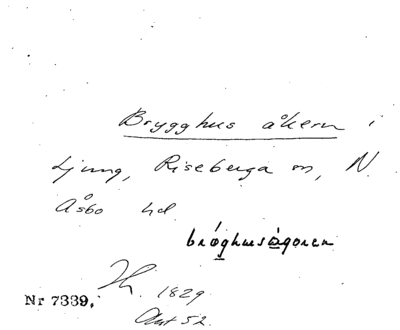 Brygghus åkern i
Ljung, Riseberga sn, N.
Åsbo hd.
brǫghusågoren
1829
Nr 7339.
Ant 52.